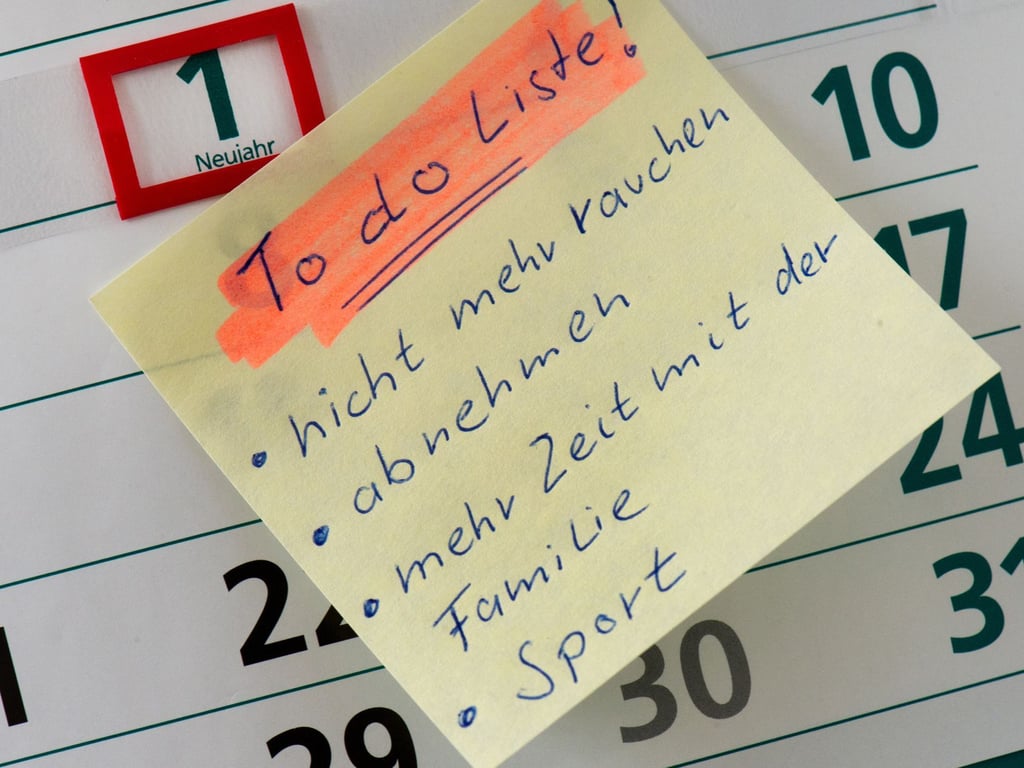 1
Neujahr
10
17
24
31
22
29
30
To do Liste!
• nicht mehr rauchen
• abnehmen
• mehr Zeit mit der
Familie
• Sport